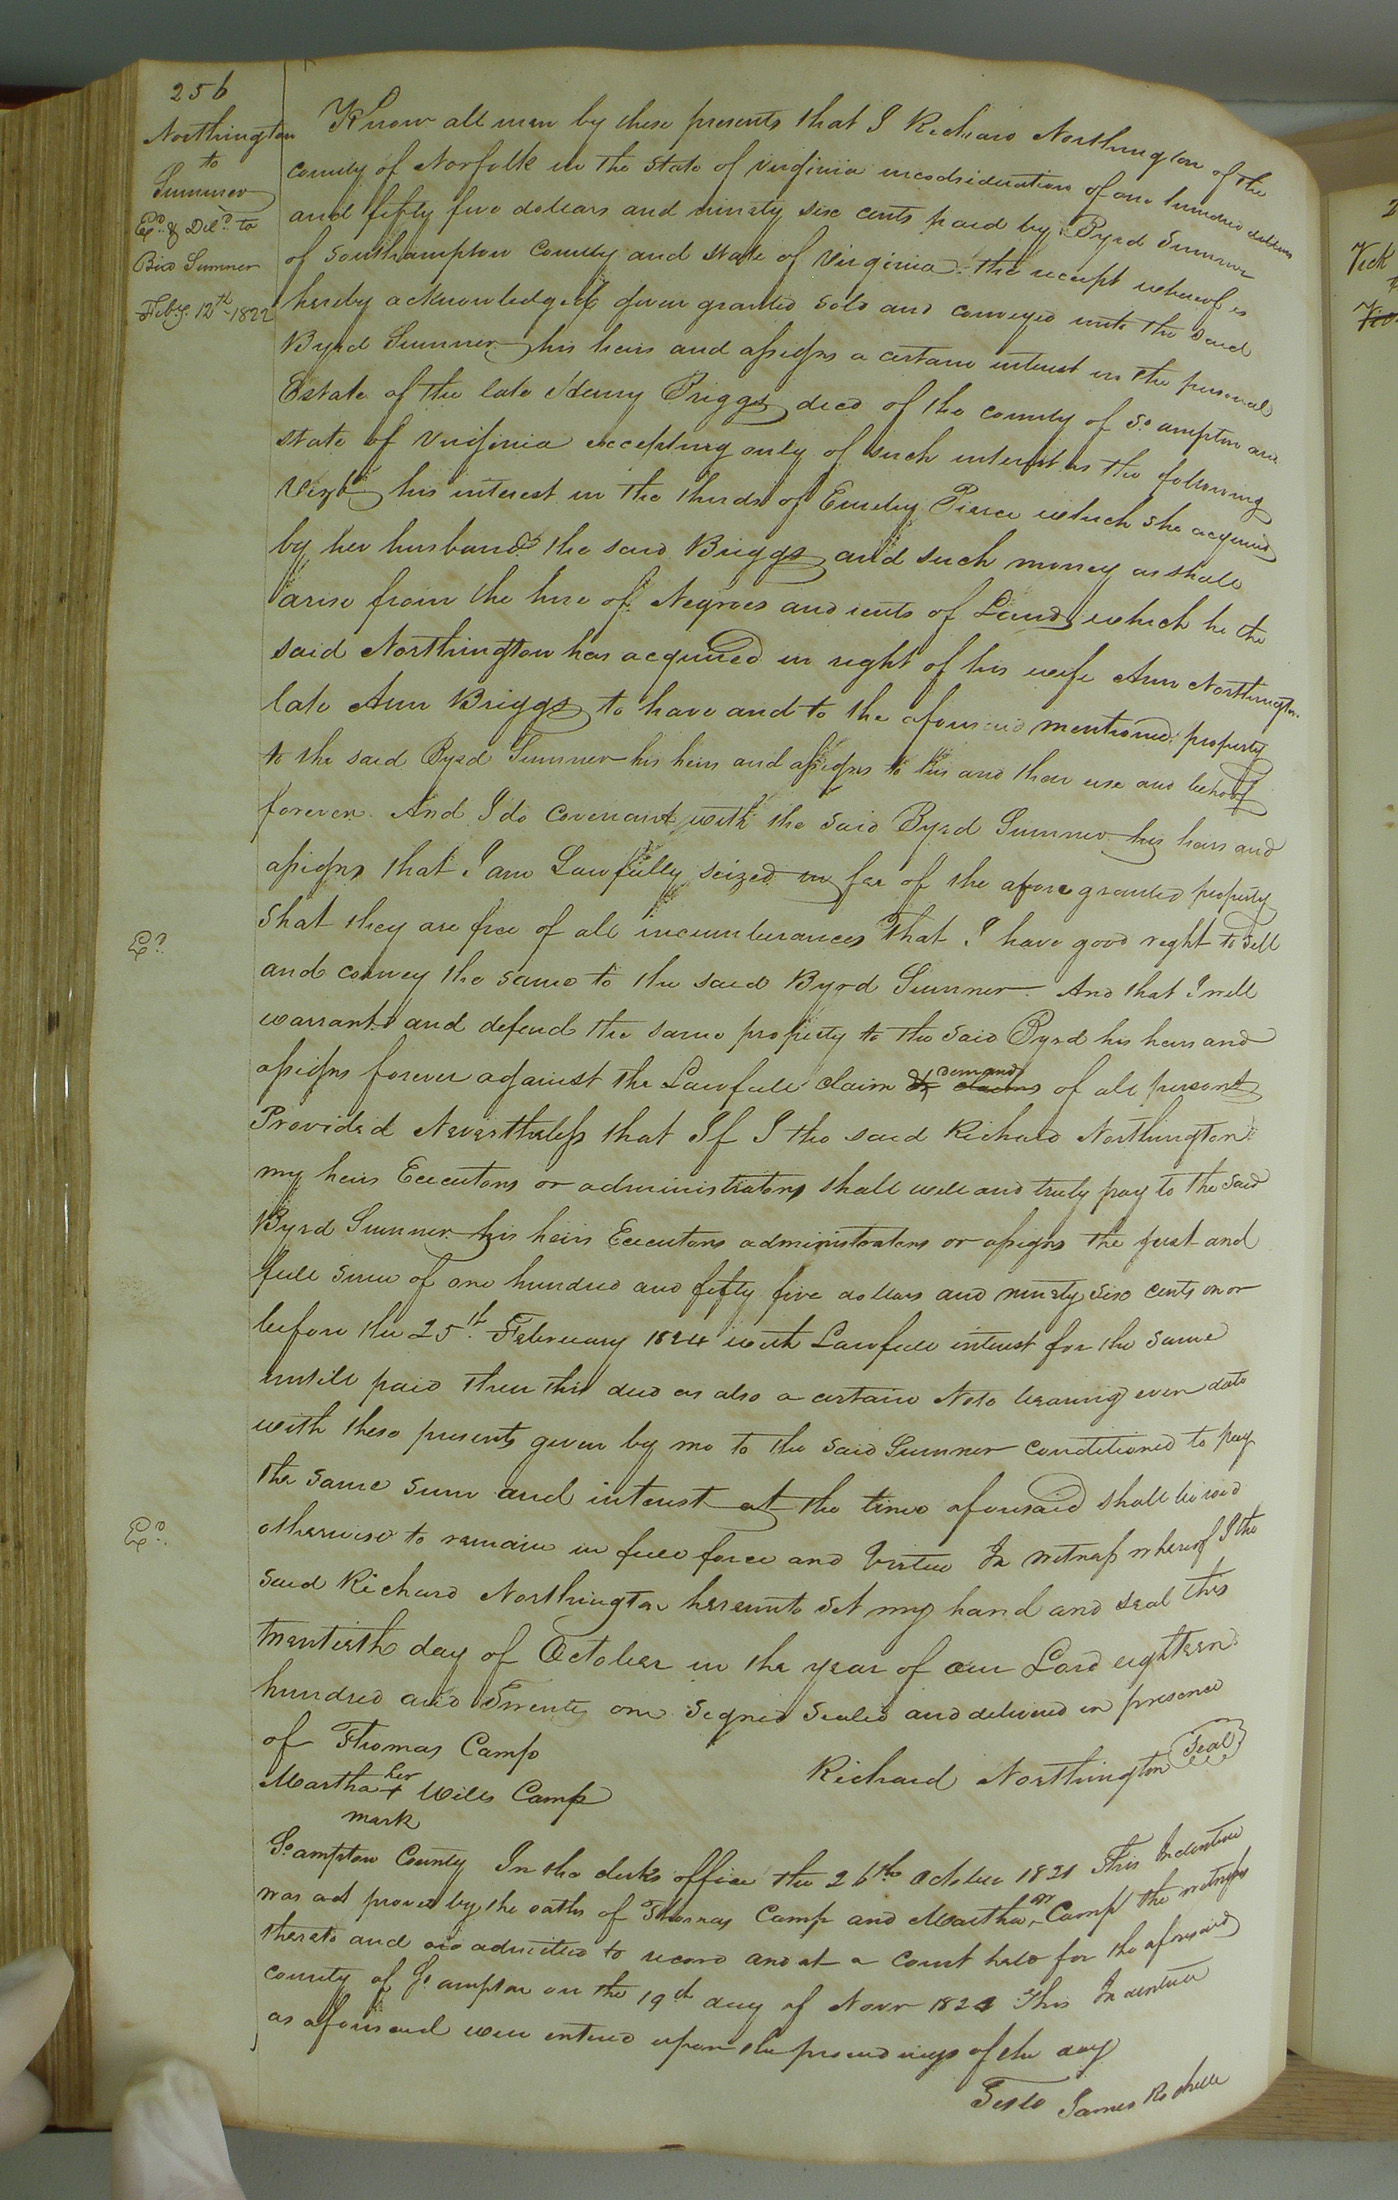 256
Northington
to
Sumner
Exd. & Deld. to
Bird Sumner
Feby. 12th 1822
Know all men by these presents that I Richard Northington of the
county of Norfolk in the State of Virginia in consideration of one hundred dollars
and fifty five dollars and ninety six cents paid by Byrd Sumner
of Southampton County and State of Virginia the receipt whereof is
hereby acknowledged given granted sold and conveyed unto the said
Byrd Sumner his heirs and assigns a certain interest in the personal
Estate of the late Henry Briggs decd of the county of So.ampton and
State of Virginia excepting only of such interest as the following
Vizt his interest in the thirds of Emily Pierce which she acquired
by her husband the said Briggs and such money as shall
arise from the hire of Negroes and rents of Land which he the
said Northington has acquired in right of his wife Ann Northington
late Ann Briggs to have and to the aforesaid mentioned property
to the said Byrd Sumner his heirs and assigns to his and their use and behoof
forever. And I do covenant with the said Byrd Sumner his heirs and
assigns that I am Lawfully seized in fee of the afore granted property
that they are free of all incumberances That I have good right to sell
Ed.
and convey the same to the said Byrd Sumner. And that I will
warrant and defend the same property to the said Byrd his heirs and
assigns forever against the Lawfull claim & demands claims of all persons
Provided Nevertheless that If I the said Richard Northington
my heirs Executors or administrators shall well and truly pay to the said
Byrd Sumner his heirs Executors administrators or assigns the just and
full sum of one hundred and fifty five dollars and ninety six cents on or
before the 25th. February 1824 with Lawfull interest for the same
untill paid then this deed as also a certain Note bearing even date
with these presents given by me to the said Sumner conditioned to pay
the same sum and interest at the time aforesaid shall be void
Ed.
otherwise to remain in full force and Virtue In witness whereof I the
said Richard Northington hereunto set my hand and seal this
twentieth day of October in the year of our Lord eighteen
hundred and Twenty one Signed Sealed and delivered in presence
of Thomas Camp
Richard Northington Seal
Martha her + Wills Camp
mark
So.ampton County In the clerks office the 26th October 1821 This Indenture
was proved by the oaths of Thomas Camp and Martha W Camp the witness
thereto and admitted to record and at a Court held for the aforesaid
county of So.ampton on the 19th day of Novr 1821 This Indenture
as aforesaid were entered upon the proceedings of the day
Teste James Rochelle
2
Vick